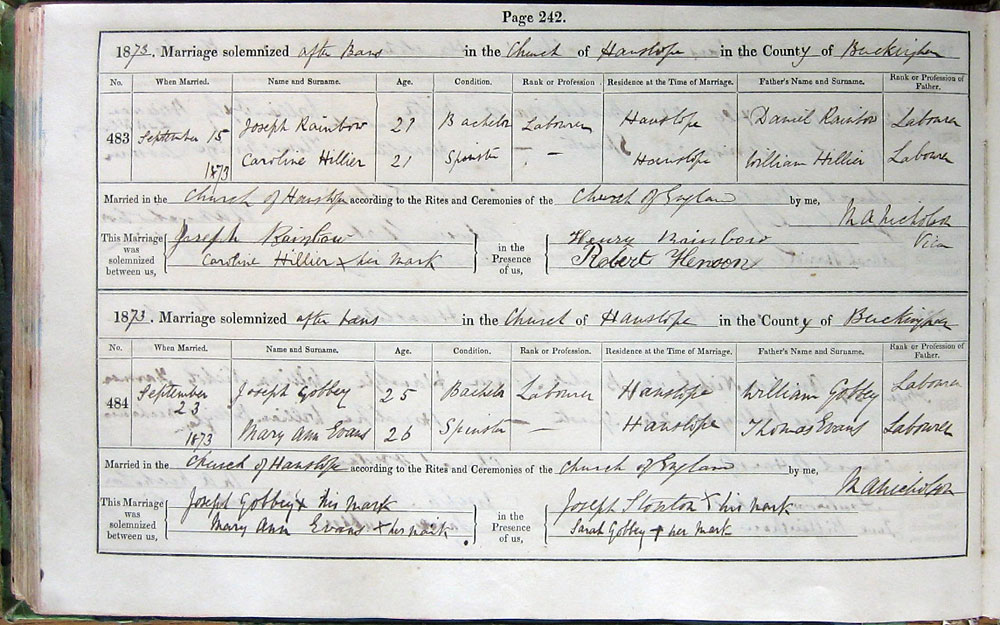 Page 242.
1873. Marriage solemnized after Bans in the Church of Hanslope in the County of Buckingham
No. When Married. Name and Surname. Age. Condition. Rank or Profession Residence at the Time of Marriage. Father's Name and Surname. Rank or Profession of Father.
483 September 15 1873 Joseph Rainbow 21 Bachelor Labourer Hanslope Daniel Rainbow Labourer
Caroline Hillier 21 Spinster - Hanslope William Hillier Labourer
Married in the Church of Hanslope according to the Rites and Ceremonies of the Church of England by me, M A Nicholson
Vicar
This Marriage was solemnized between us, Joseph Rainbow in the Presence of us, Henry Rainbow
Caroline Hillier x her mark Robert Henson
1873. Marriage solemnized after bans in the Church of Hanslope in the County of Buckingham
No. When Married. Name and Surname. Age. Condition. Rank or Profession. Residence at the Time of Marriage. Father's Name and Surname. Rank or Profession of Father.
484 September 23 1873 Joseph Gobbey 25 Bachelor Labourer Hanslope William Gobbey Labourer
Mary Ann Evans 26 Spinster - Hanslope Thomas Evans Labourer
Married in the Church of Hanslope according to the Rites and Ceremonies of the Church of England by me, M A Nicholson
This Marriage was solemnized between us, Joseph Gobbey x his mark in the Presence of us, Joseph Stonton x his mark
Mary Ann Evans x her mark Sarah Gobbey x her mark